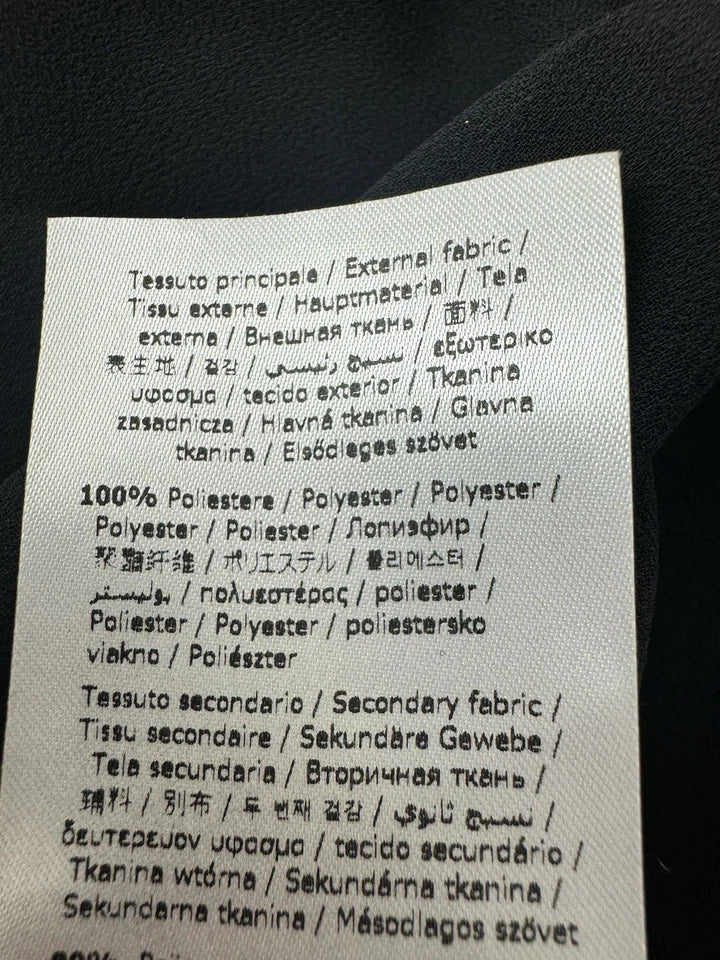 Tessuto principale / External fabric /
Tissu externe / Hauptmaterial / Tela
externa / Внешная ткань / 面料 /
表生地 / 겉감 / نسيج رئيسي / εξωτερικο
υφασμα / tecido exterior / Tkanina
zasadnicza / Hlavná tkanina / Glavna
tkanina / Elsődleges szövet
100% Poliestere / Polyester / Polyester /
Polyester / Poliester / Лопиэфир /
聚酯纤维 / ポリエステル / 폴리에스터 /
بوليستر / πολυεστέρας / poliester /
Poliester / Polyester / poliestersko
viakno / Poliészter
Tessuto secondario / Secondary fabric /
Tissu secondaire / Sekundäre Gewebe /
Tela secundaria / Вторичная ткань /
辅料 / 別布 / 두 번째 겉감 / نسيج ثانوي /
δευτερευον υφασμα / tecido secundário /
Tkanina wtórna / Sekundárna tkanina /
Sekundarna tkanina / Másodlagos szövet